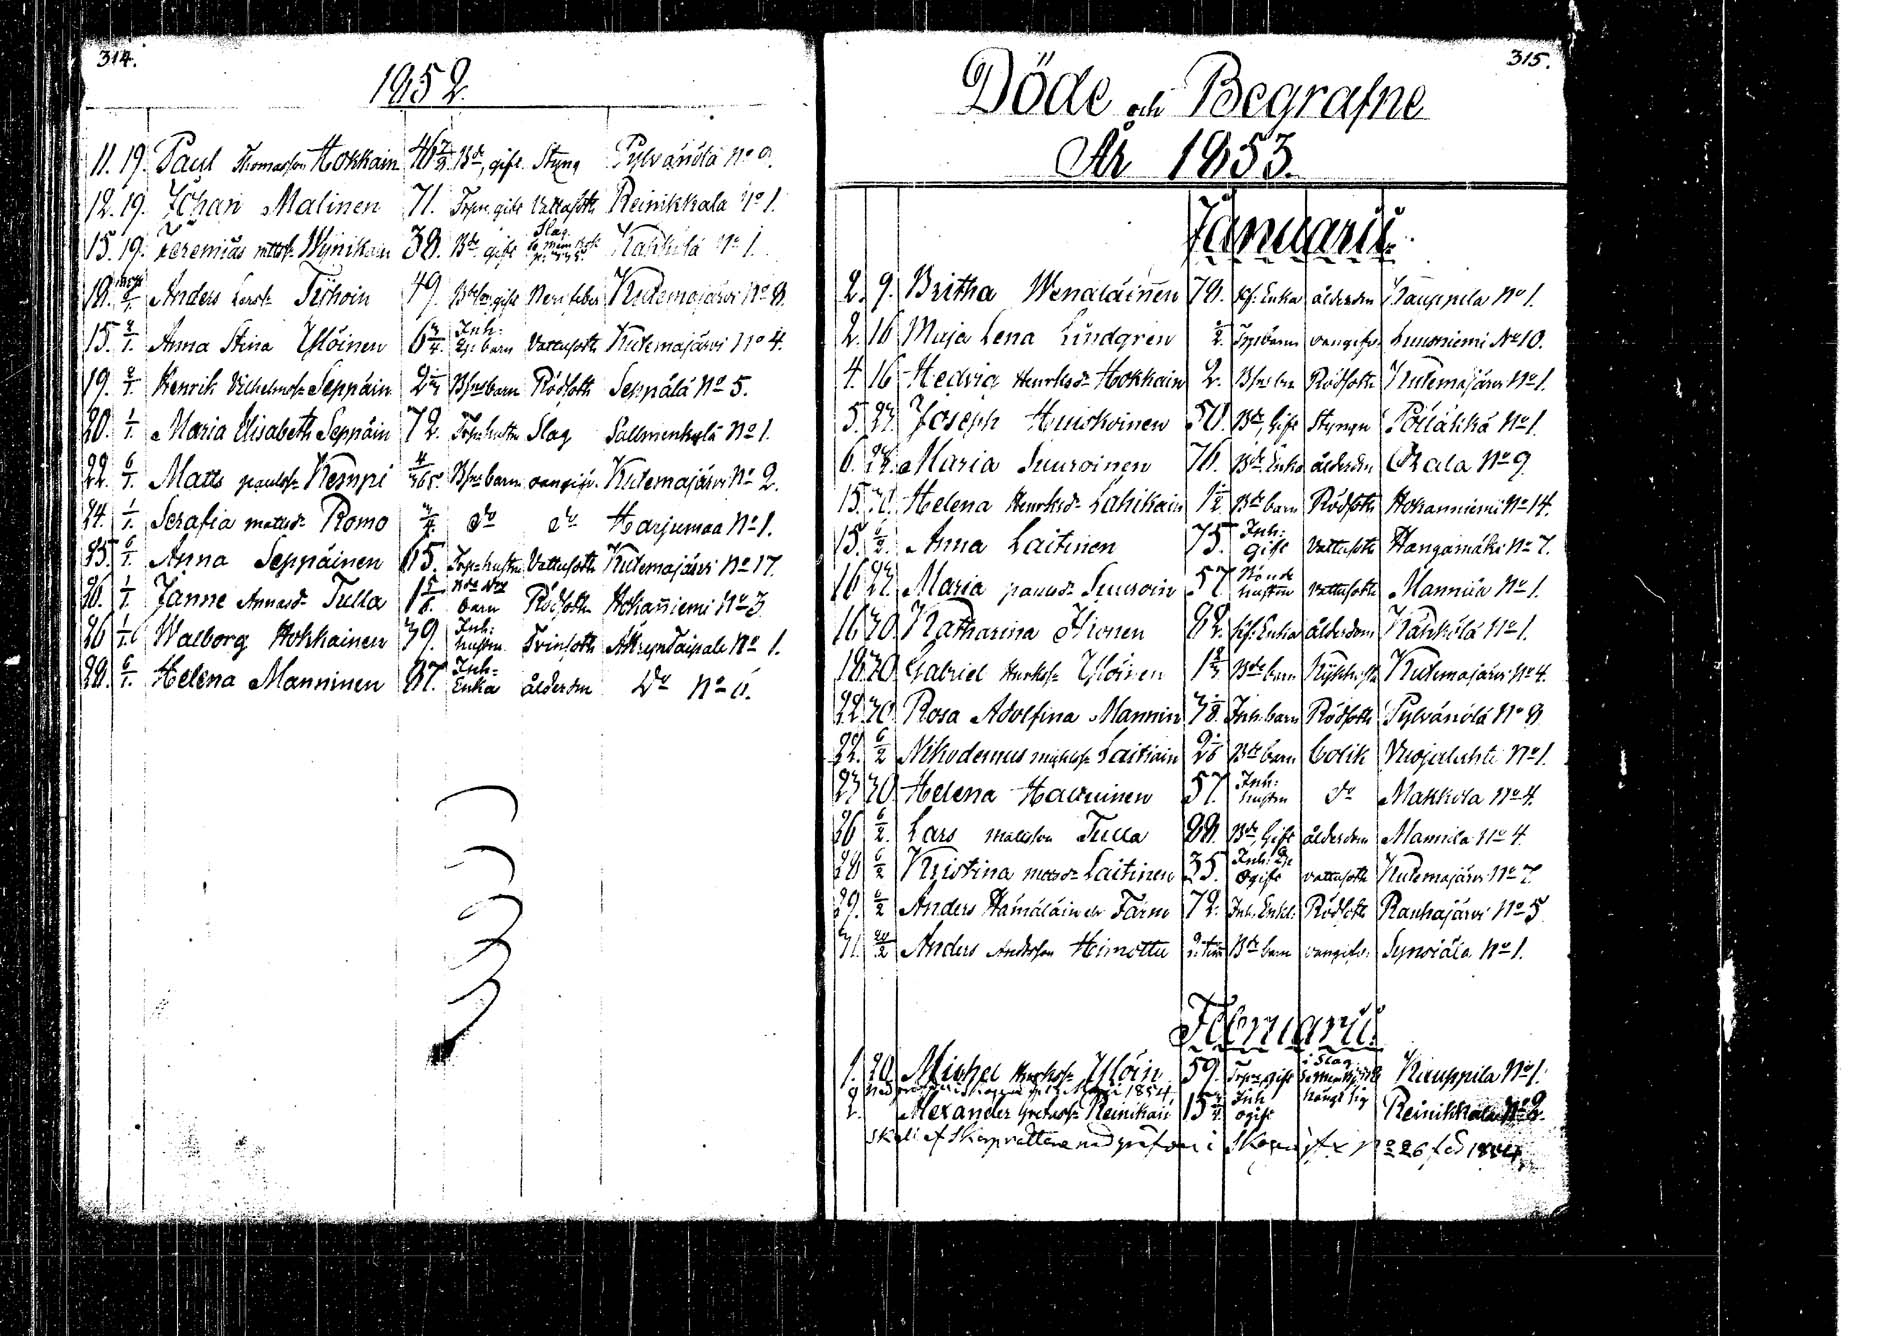 314.
1852.
11. 19. Paul Thomasson Hokkain 46 Bde, gift Styng Pylvänölä No 9.
12. 19. Johan Malinen 71. gift Vattusoth Reinikkala No 1.
15. 19. Jeremias Wÿnikain 38. Bde gift Slag Kähkölä No 1.
18. Anders Larss: 49. gift Nerffeber Kutemajärvi No 8.
15. 2/1. Anna Stina Ylöinen 6 3/4. Inh: barn Vattusoth Kutemajärvi No 4.
19. 2/1 Henrik Vilhelmss: Seppäin 2 barn Rödsoth Seppälä No 5.
20. 1/1. Maria Elisabeth Seppäin 72. hustru Slag Sallmenkylä No 1.
22. 6/1. Matts paulss: Kemppi 4/365. barn oangif. Kutemajärvi No 2.
24. 1/1. Serafia mattsd: Romo 3/4. do do Harjumaa No 1.
25. 6/1. Anna Seppäinen 65. hustru Vattusoth Kutemajärvi No 17.
26. 1/1. Janne Annasd: Tulla 1 5/8. barn Rödsoth Hokaniemi No 3
26 1/1. Walborg Hokkainen 39. Inh: hustru Tvinsoth No 1.
28. 6/1. Helena Manninen 87. Inh: Enka ålderdm Do No 6.
315.
Döde och Begrafne
År 1853.
Januarii.
2. 9. Britha Wenäläinen 78. Enka ålderdm Kauppila No 1.
2. 16 Maja Lena Lindgren barn oangifv. Luusniemi No 10.
4. 16 Hedvig Henriksd: Hokkain 2. Rödsoth Kutemajärvi No 1.
5. 23. Joseph Huiskoinen 50. Bde, Gift Styngn Pöllähkä No 1.
6. 23. Maria Suuroinen 76. Bde Enka ålderdm No 9.
15. 30. Helena Henriksd: Lahikain 1 1/2 Bde barn Rödsoth Hokanniemi No 14.
15. 6/2. Anna Laitinen 75. Inh: gift Vattusoth Hangamäki No 7.
16 23. Maria paulsd: Suuroin 57. Bonde hustru Vattusoth Mannila No 1.
16 30. Katharina Hironen 82. Enka ålderdom Kähkölä No 1.
18 30. Gabriel Henrikss: Ylöinen 1 Bde barn Kikhosta Kutemajärvi No 4.
22 30. Rosa Adolfina Mannin Inh. barn Rödsoth Pylvänölä No 8
22. 6/2 Nikodemus Laitiain Bde barn Colik Vuojalahti No 1.
23 30. Helena Halvuinen 57. Inh: hustru do Makkola No 4.
26 6/2. Lars Mattsson Tulla 88. Bde, Gift ålderdom Mannila No 4.
28 6/2 Kristina Laitinen 35. Inh: Ogift vattusoth Kutemajärvi No 7.
29. 6/2 Anders Hämäläin el. Färm 72. Inh. Enkl. Rödsoth Rauhajärvi No 5
31. 20/2 Anders Andersson Himottu Bde barn oangifv: Synsiälä No 1.
Februarii.
1. 20. Michel Henrikss: Ylöin 59. gift i Slag Kauppila No 1.
1854.
2. Alexander Gretass: Reinikain 15 3/4. Inh ogift hängt sig Reinikkala No 2.
af Skarprättare i No 26 1854